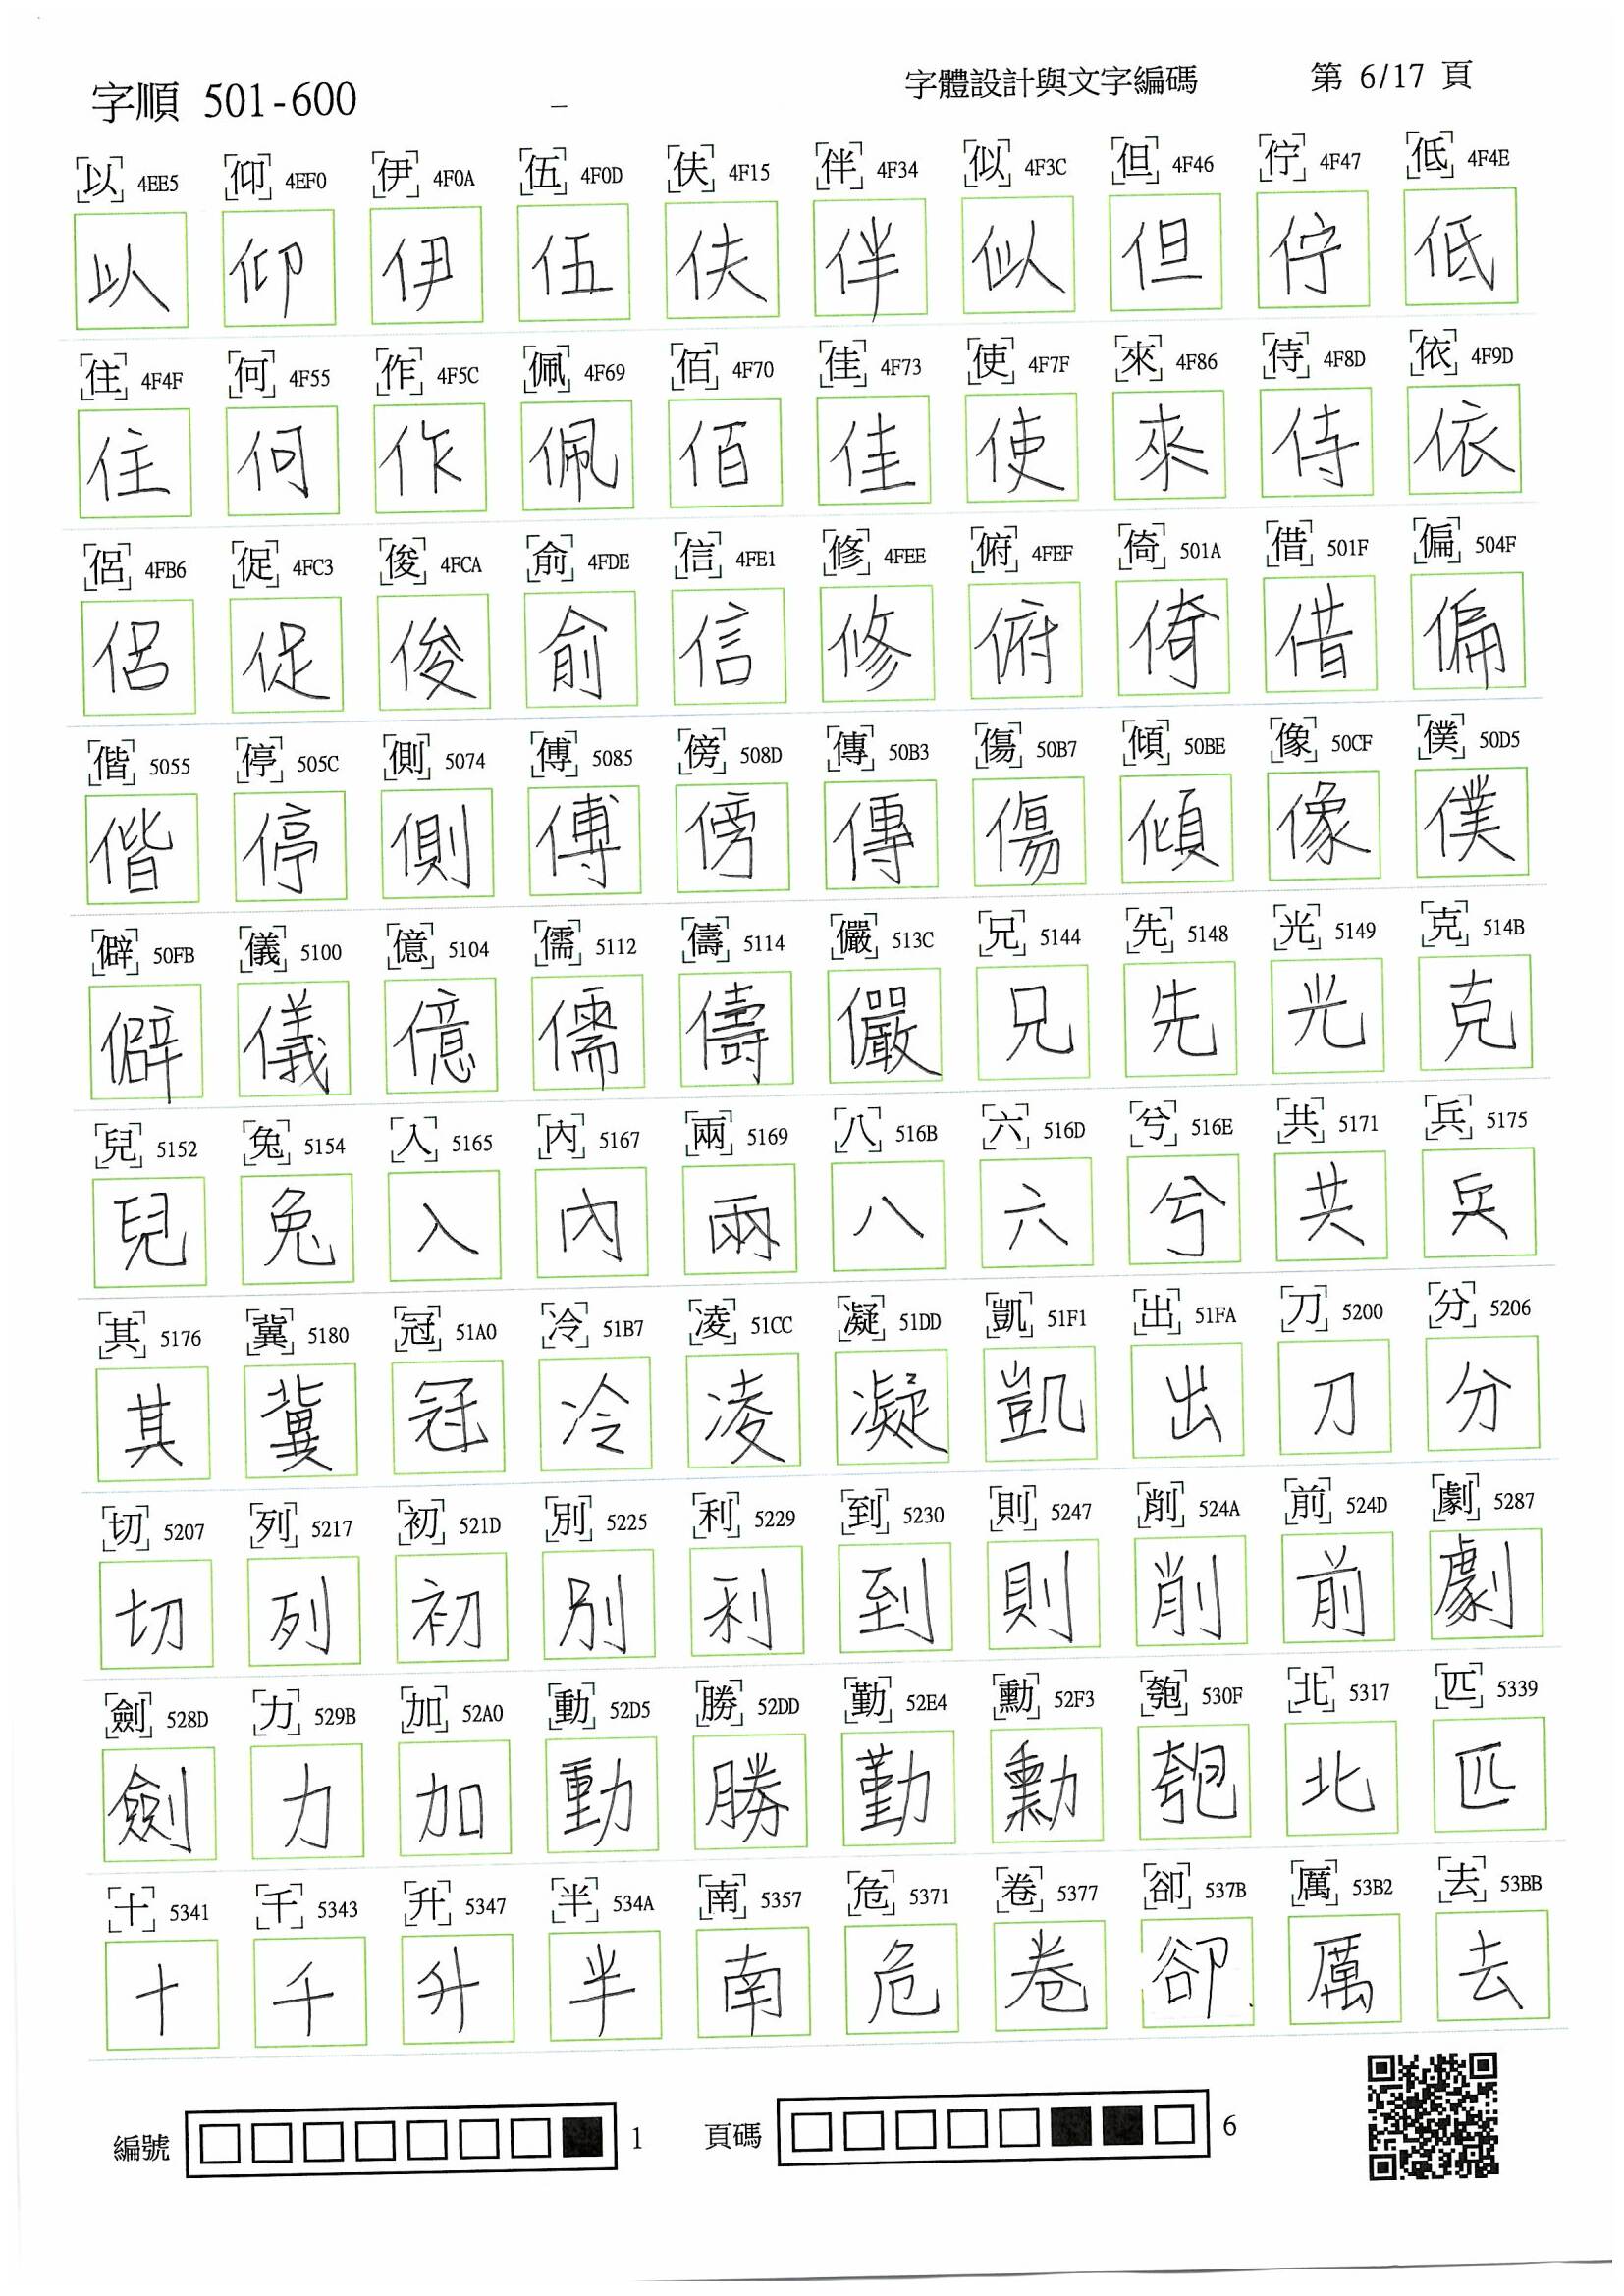 字順 501-600
字體設計與文字編碼 第 6/17 頁
以 4EE5 仰 4EF0 伊 4F0A 伍 4F0D 伕 4F15 伴 4F34 似 4F3C 但 4F46 佇 4F47 低 4F4E
以 仰 伊 伍 伕 伴 似 但 佇 低
住 4F4F 何 4F55 作 4F5C 佩 4F69 佰 4F70 佳 4F73 使 4F7F 來 4F86 侍 4F8D 依 4F9D
住 何 作 佩 佰 佳 使 來 侍 依
侶 4FB6 促 4FC3 俊 4FCA 俞 4FDE 信 4FE1 修 4FEE 俯 4FEF 倚 501A 借 501F 偏 504F
侶 促 俊 俞 信 修 俯 倚 借 偏
偕 5055 停 505C 側 5074 傅 5085 傍 508D 傳 50B3 傷 50B7 傾 50BE 像 50CF 僕 50D5
偕 停 側 傅 傍 傳 傷 傾 像 僕
僻 50FB 儀 5100 億 5104 儒 5112 儔 5114 儼 513C 兄 5144 先 5148 光 5149 克 514B
僻 儀 億 儒 儔 儼 兄 先 光 克
兒 5152 兔 5154 入 5165 內 5167 兩 5169 八 516B 六 516D 兮 516E 共 5171 兵 5175
兒 兔 入 內 兩 八 六 兮 共 兵
其 5176 冀 5180 冠 51A0 冷 51B7 凌 51CC 凝 51DD 凱 51F1 出 51FA 刀 5200 分 5206
其 冀 冠 冷 凌 凝 凱 出 刀 分
切 5207 列 5217 初 521D 別 5225 利 5229 到 5230 則 5247 削 524A 前 524D 劇 5287
切 列 初 別 利 到 則 削 前 劇
劍 528D 力 529B 加 52A0 動 52D5 勝 52DD 勤 52E4 勳 52F3 匏 530F 北 5317 匹 5339
劍 力 加 動 勝 勤 勳 匏 北 匹
十 5341 千 5343 升 5347 半 534A 南 5357 危 5371 卷 5377 卻 537B 厲 53B2 去 53BB
十 千 升 半 南 危 卷 卻 厲 去
編號 1 頁碼 6